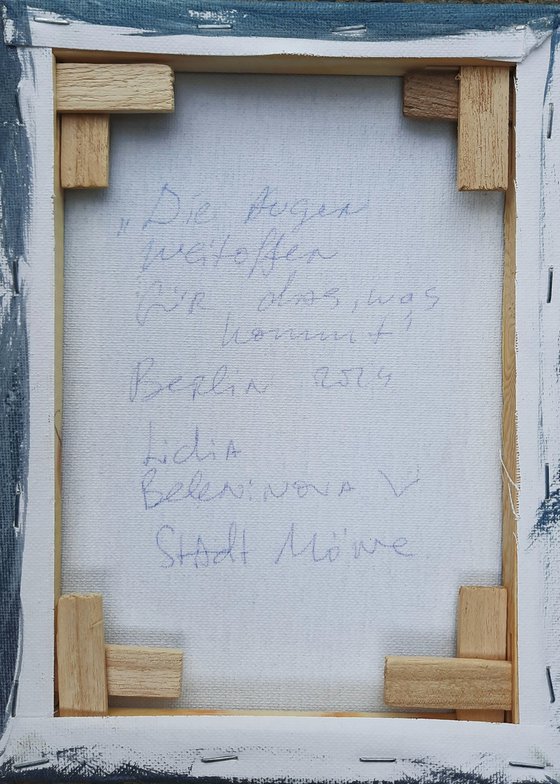 „Die Augen
weitoffen
für das, was
kommt"
Berlin 2024
Lidia
Beleninova
Stadt Möwe